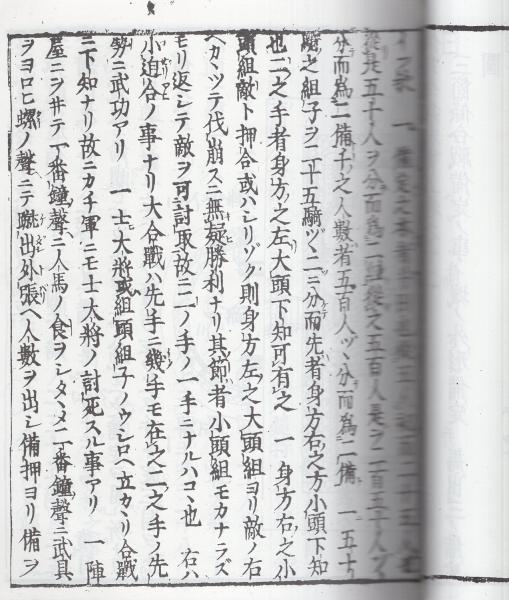 従共五十人ヲ分而為二種従之五百人是ヲ二百五十人ツヽ
分而為二備手之人数者五百人ツヽ分而為二備 一 五十
騎之組子ヲ二十五騎ツヽ二ニ分而先者身方右之方小頭下知
也二之手者身方之左大頭下知可有之 一 身方右之小
頭組敵ト押合或ハシリゾク則身方左之大頭組ヨリ敵ノ右
ヘカヽツテ伐崩スニ無疑勝利ナリ其節者小頭組モカナラズ
モリ返シテ敵ヲ可討取故ニ二ノ手ノ一手ニナルハコヽ也 右ハ
小迫合ノ事ナリ大合戰ハ先手ニ幾手モ在之二之手ノ先
勢ニ武功アリ 一 士大將或組頭組子ノウシロヘ立カヽリ合戰
ニ下知ナリ故ニカチ軍ニモ士大將ノ討死スル事アリ 一 陣
屋ニヲ井テ一番鐘聲ニ人馬ノ食ヲシタヽメ二番鐘聲ニ武具
ヲヨロヒ螺ノ聲ニテ踟出外張ヘ人數ヲ出シ備押ヨリ備ヲ